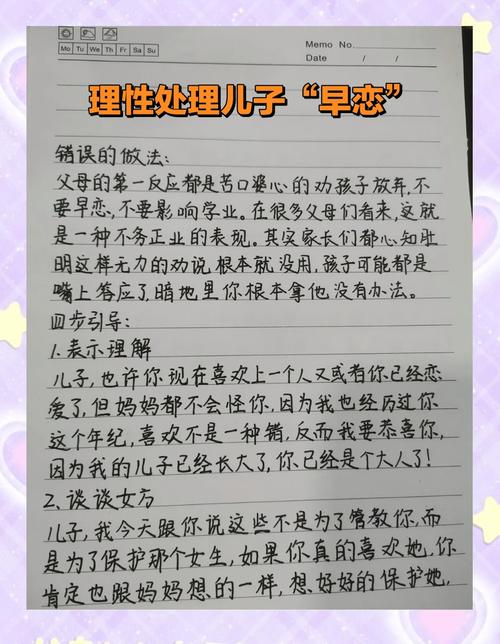 Memo No.
Mo Tu We Th Fr Sa Su
Date / /
理性处理儿子“早恋”
错误的做法:
父母的第一反应都是苦口婆心的劝孩子放弃,不
要早恋,不要影响学业。在很多父母们看来,这就
是一种不务正业的表现。其实家长们都心知肚
明这样无力的劝说根本就没用,孩子可能都是
嘴上答应了,暗地里你根本拿他没有办法。
四步引导:
1.表示理解
儿子,也许你现在喜欢上一个人又或者你已经恋
爱了,但妈妈都不会怪你,因为我也经历过你
这个年纪,喜欢不是一种错,反而我要恭喜你,
因为我的儿子已经长大了,你已经是个大人了!
2、谈谈女方
儿子,我今天跟你说这些不是为了管教你,而
是为了保护那个女生,如果你真的喜欢她,你
肯定也跟妈妈想的一样,想好好的保护她,